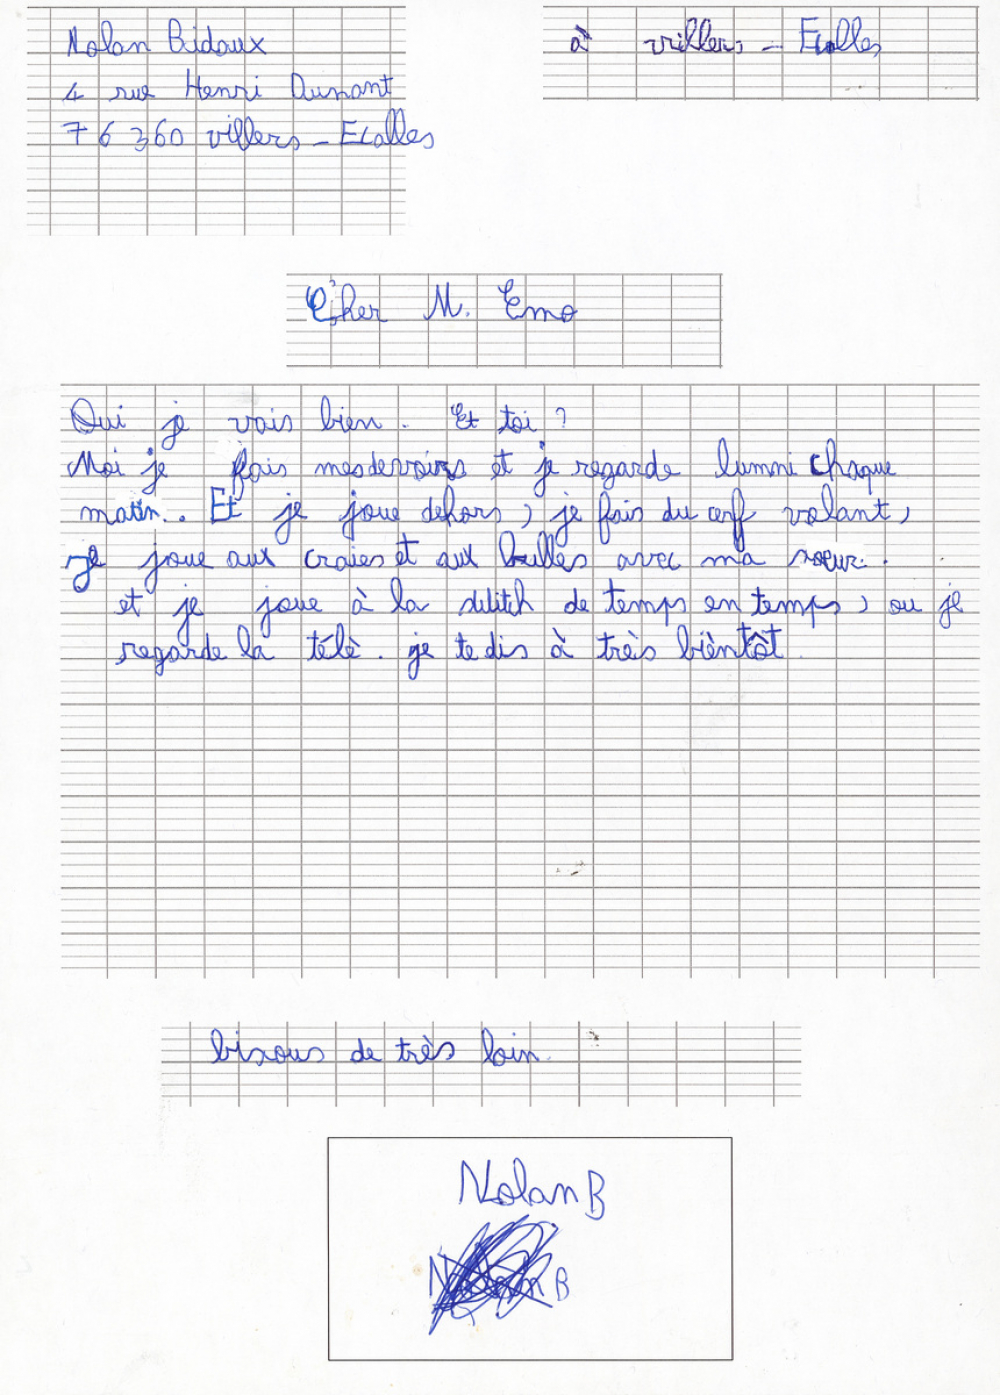 Nolan Bidaux
4 rue Henri Dunant
76360 villers - Ecalles
à villers - Ecalles
Cher M. Emo
Oui je vais bien. Et toi ?
Moi je fais mes devoirs et je regarde lumni chaque
matin.. Et je joue dehors, je fais du cerf volant,
je joue aux craies et aux bulles avec ma soeur.
et je joue à la switch de temps en temps, ou je
regarde la télè. je te dis à très bièntôt.
bisous de très loin.
Nolan B
B